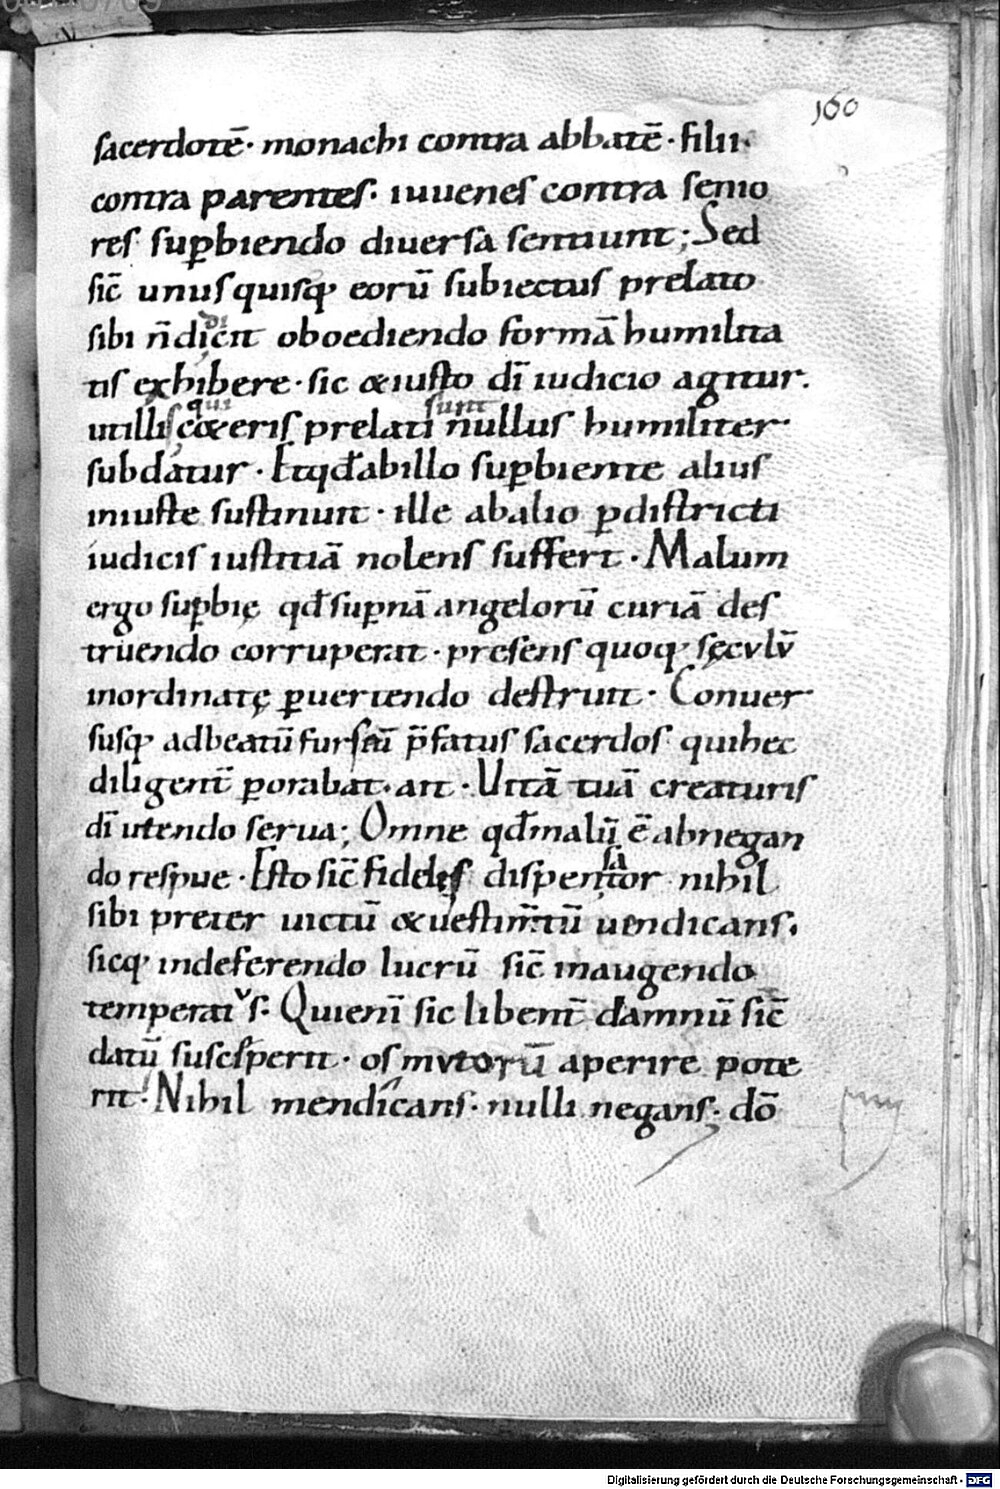 160
sacerdotē· monachi contra abbatē· filii
contra parentes· iuuenes contra senio
res sup̱biendo diuersa sentiunt; Sed
sic̄ unusquisq; eorū subiectus prelato
sibi n̄ dicit oboediendo formā humilita
tis exhibere· sic & iusto dī iudicio agitur.
qui sunt
utilli c&eris prelati nullus humiliter
subdatur· Et qđ ab illo sup̱biente alius
iniuste sustinuit· ille ab alio p̱ districti
iudicis iustitiā nolens suffert· Malum
ergo sup̱bię qđ sup̱nā angelorū curiā des
truendo corruperat· presens quoq; sęculū
inordinatę p̱uertendo destruit· Conuer
susq; ad beatū furseū p̄fatus sacerdos qui hec
diligent̄ p̱orabat· ait· Vitā tuā creaturis
dī utendo serua; Omne qđ malū ē abnegan
do respue· Esto sic̄ fidelis dispen
sa
tor nihil
sibi preter uictū & uestim̄tū uendicans·
sicq; in deferendo lucrū sic̄ in augendo
temperatus· Qui enī sic libent̄ damnū sic̄
datū susceperit· os mutorū aperire pote
rit· Nihil mendicans· nulli negans· dō
Digitalisierung gefördert durch die Deutsche Forschungsgemeinschaft - DFG